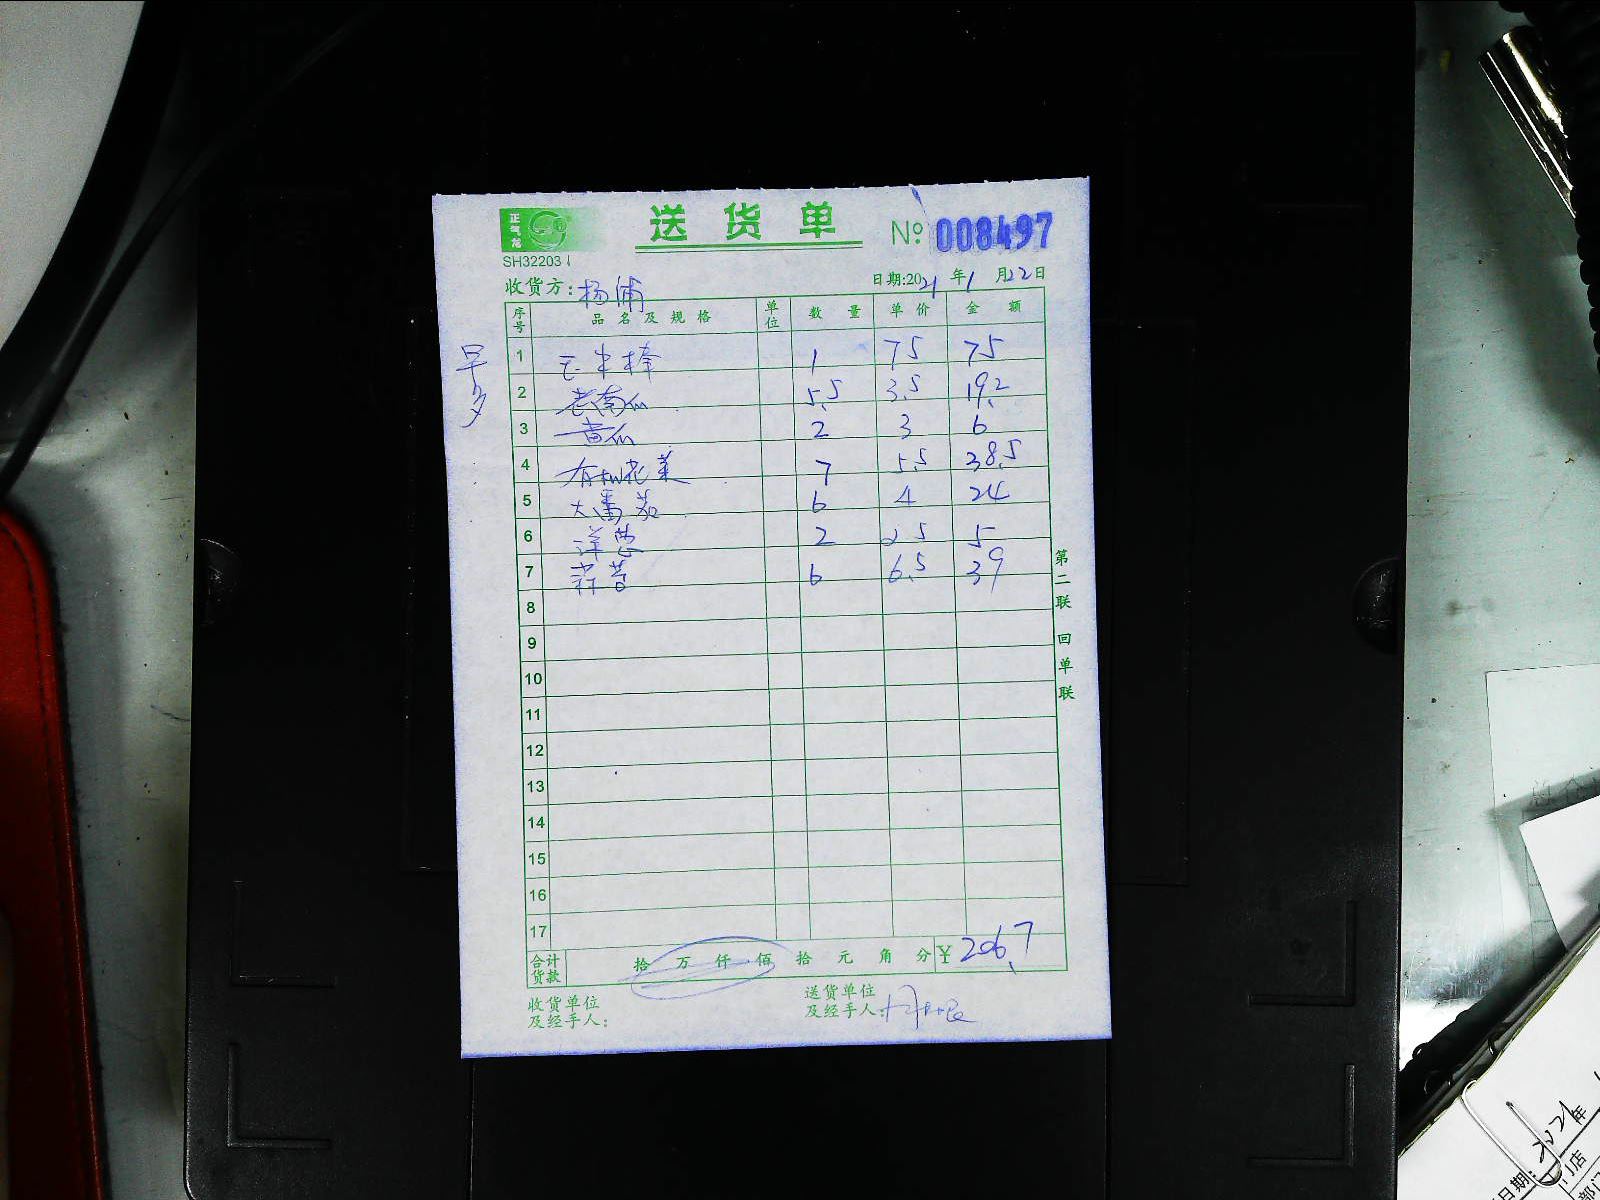 正气龙
送 货 单
№ 008497
SH32203
收货方: 杨浦
日期:2021年1月22日
序号 品名及规格 单位 数量 单价 金额
早
1 玉米棒 1 75 75
2 老南瓜 5.5 3.5 19.2
3 黄瓜 2 3 6
4 有机花菜 7 5.5 38.5
5 大番茄 6 4 24
6 洋葱 2 2.5 5
7 6 6.5 39
8
9
10
11
12
13
14
15
16
17
第二联 回单联
合计货款 拾 万 仟 佰 拾 元 角 分 ¥ 206.7
收货单位及经手人:
送货单位及经手人:
2021年
日期:
门店
部门